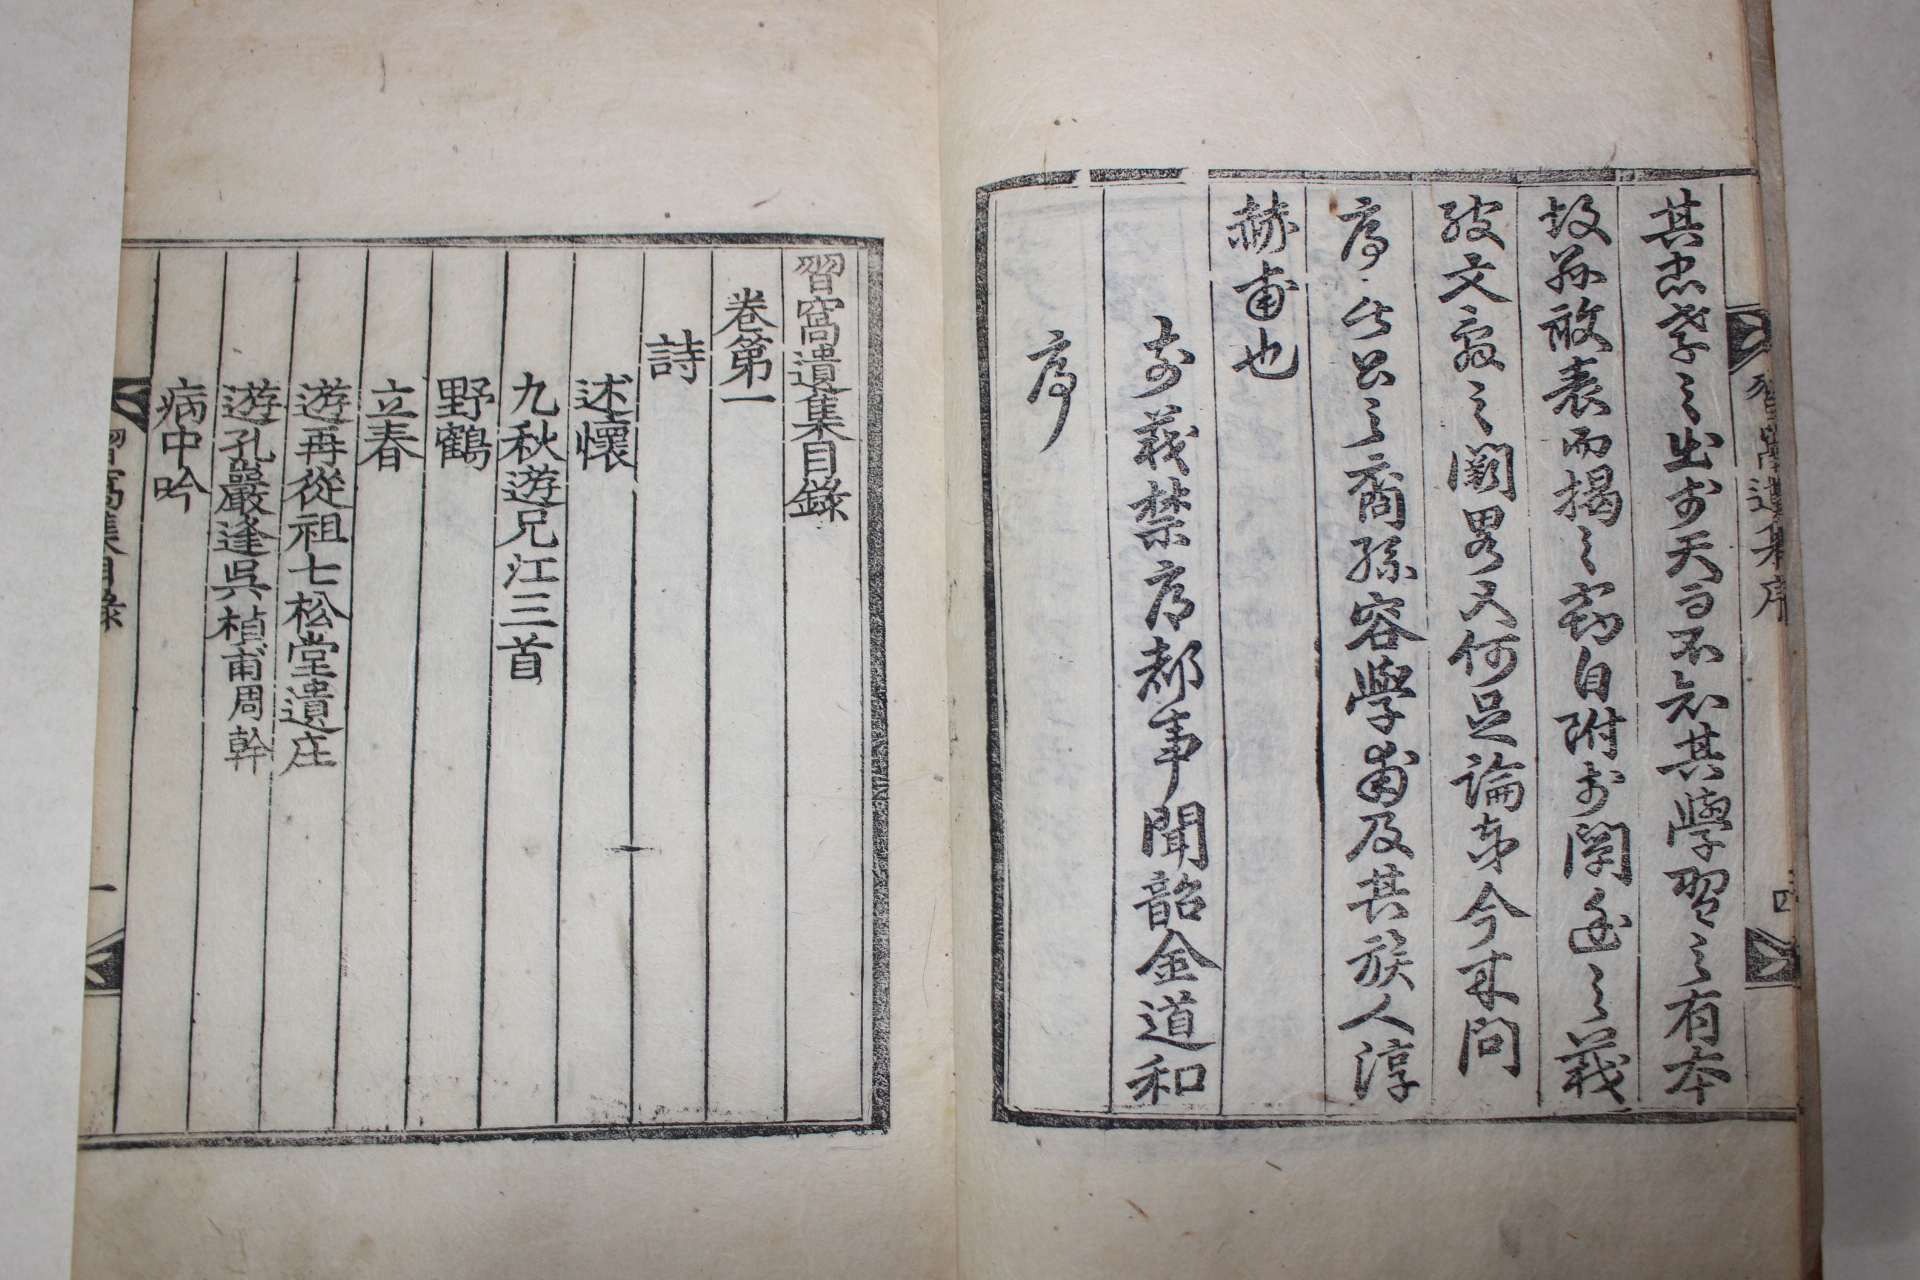 其忠孝之出於天而不知其學習之有本
故孫敢表而揭之竊自附於闡幽之義
於文辭之闕畧又何足論哉今來問
序於公之裔孫容學甫及其族人淳
赫甫也
前義禁府都事聞韶金道和
序
習窩遺集序
四
習窩遺集目錄
卷第一
詩
述懷
九秋遊兄江三首
野鶴
立春
遊再從祖七松堂遺庄
遊孔巖逢吳楨甫周幹
病中吟
習窩集目錄
一